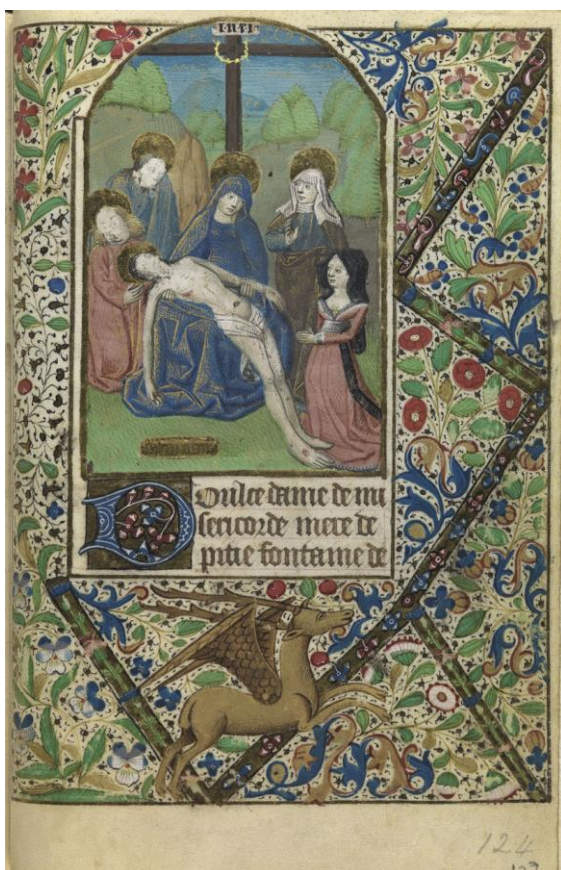 INRI
Doulce dame de mi
sericorde mere de
pitie fontaine de
124